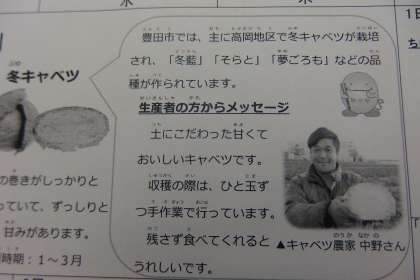 水
木
1日
ち
冬キャベツ
の巻きがしっかりと
っていて、ずっしりと
甘みがあります。
時期：1～3月
豊田市では、主に高岡地区で冬キャベツが栽培
され、「冬藍」「そらと」「夢ごろも」などの品
種が作られています。
生産者の方からメッセージ
土にこだわった甘くて
おいしいキャベツです。
収穫の際は、ひと玉ず
つ手作業で行っています。
残さず食べてくれると
うれしいです。
▲キャベツ農家 中野さん